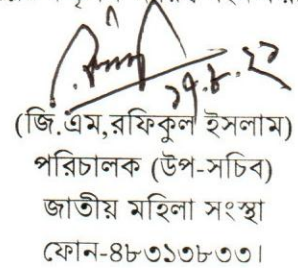 (জি.এম,রফিকুল ইসলাম)
পরিচালক (উপ-সচিব)
জাতীয় মহিলা সংস্থা
ফোন-৪৮৩১৩৮৩৩।